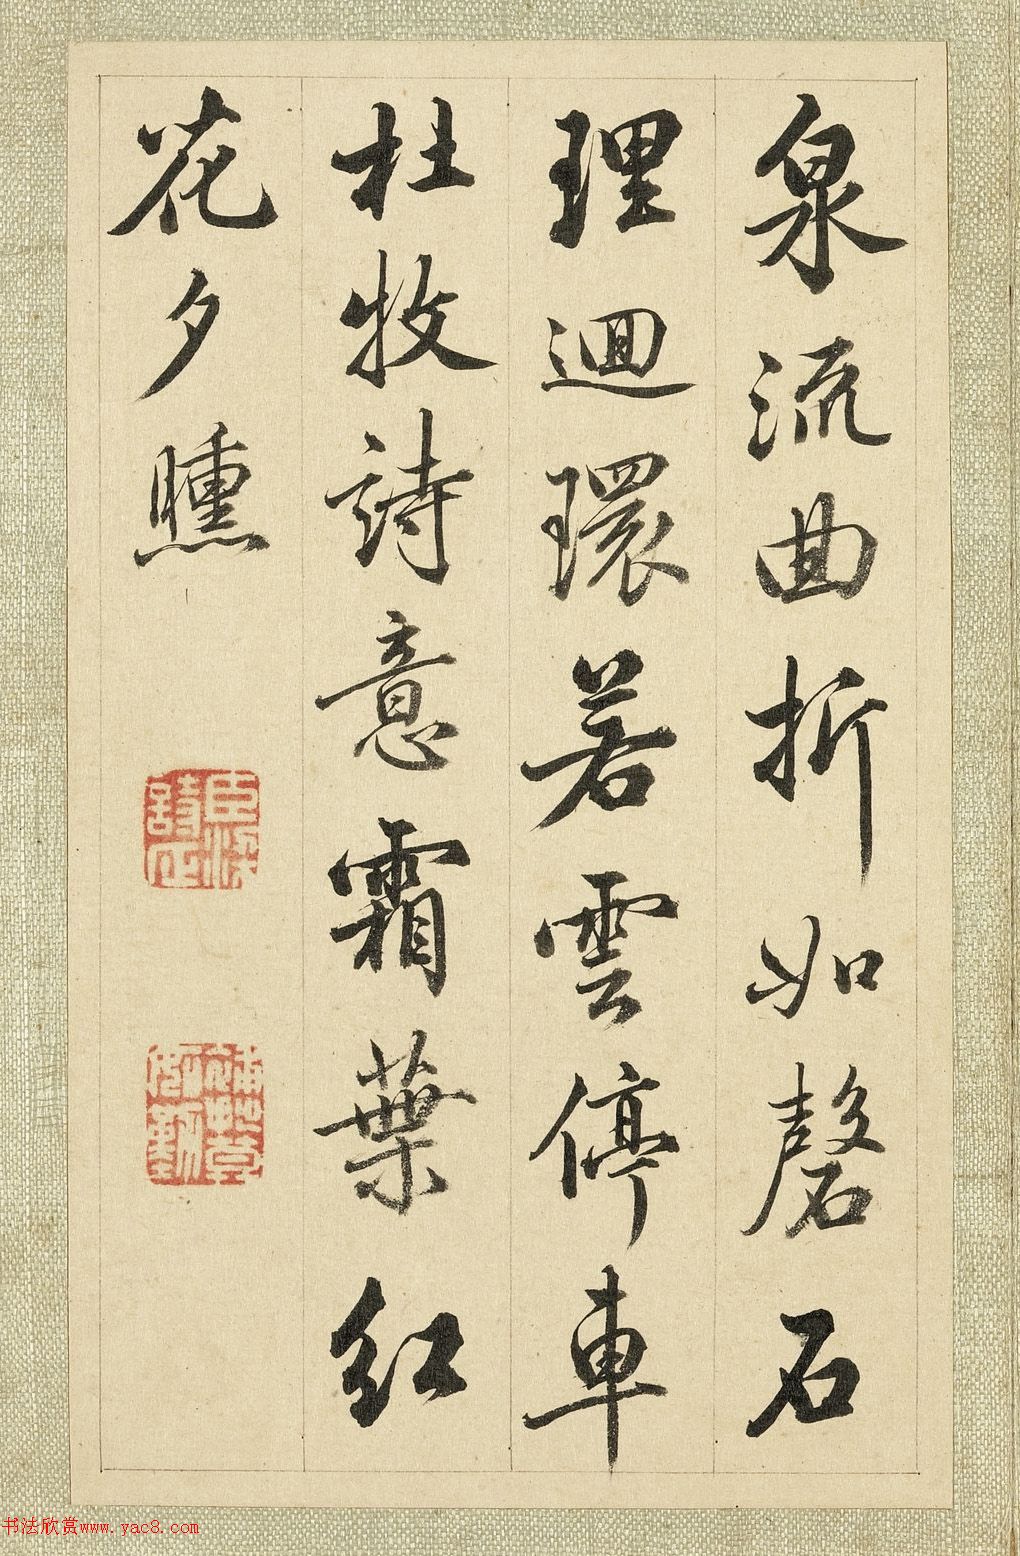 泉流曲折如磬石
理迴環若雲停車
杜牧詩意霜葉紅
花夕曛
书法欣赏www.yac8.com